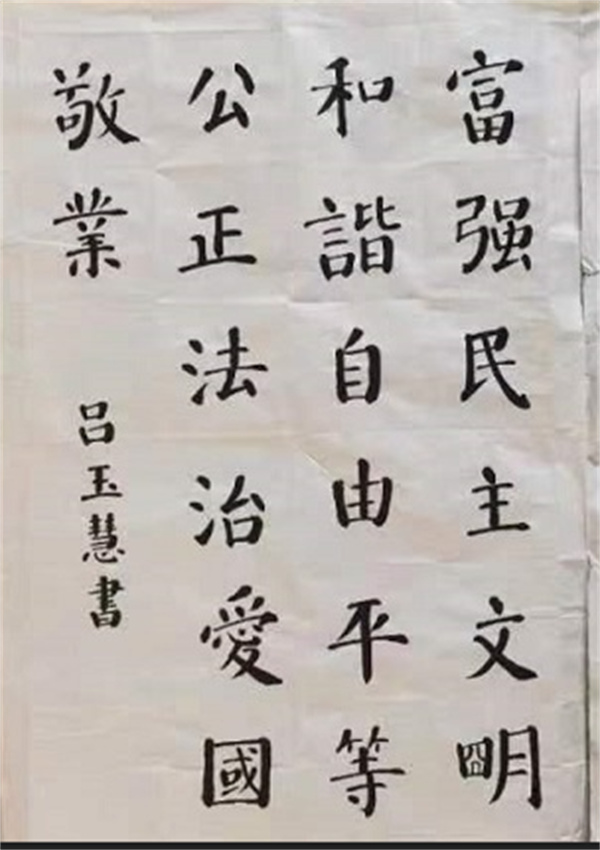 富强民主文明
和諧自由平等
公正法治愛國
敬業
吕玉慧書